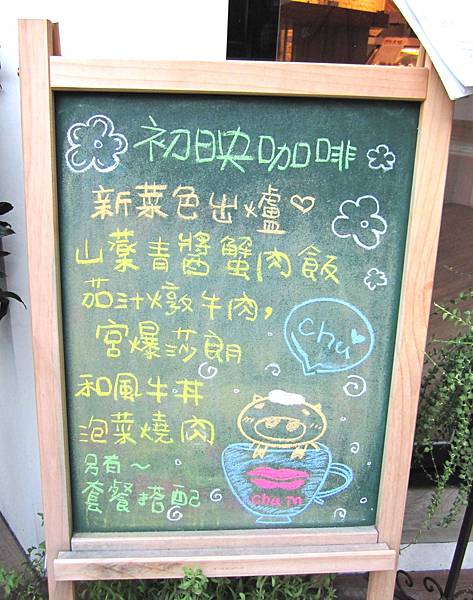 初映咖啡
新菜色出爐♡
山藥青醬蟹肉飯
茄汁燉牛肉,
宮爆莎朗
和風牛丼
泡菜燒肉
另有~
套餐搭配
chu
cham